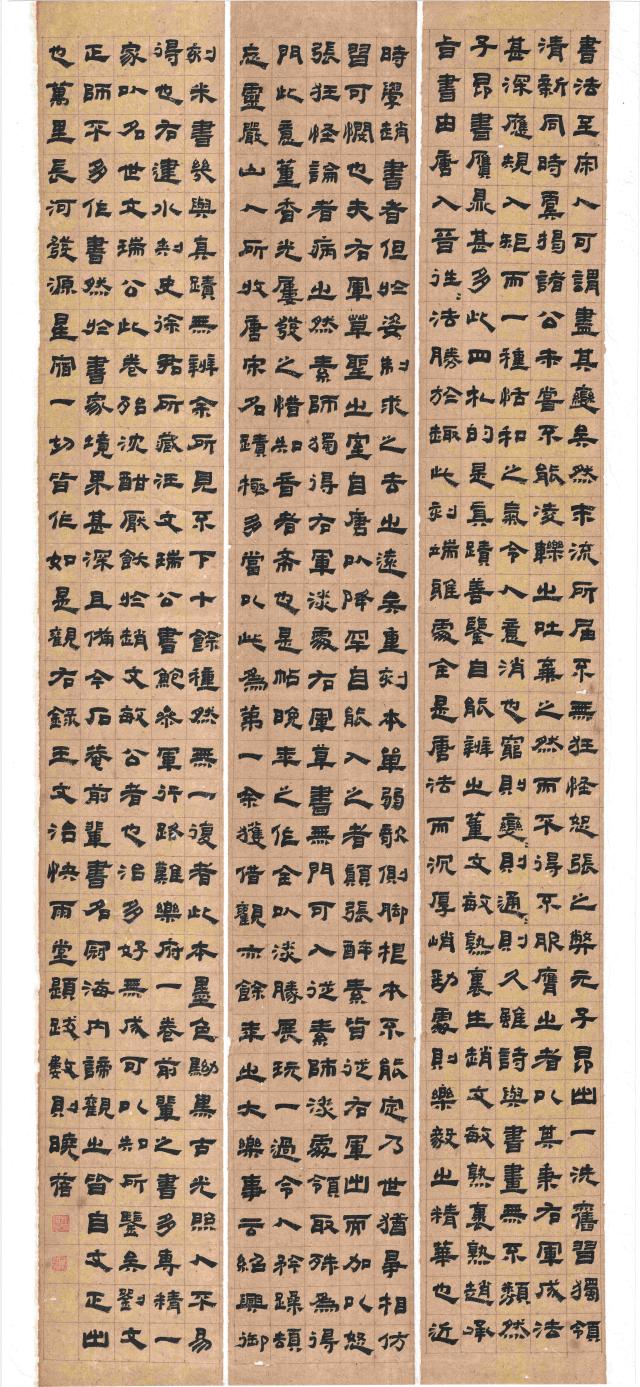 書法至宋人可謂盡其變矣然末流所屆不無狂怪怒張之弊元子昂出一洗舊習獨領
清新同時奚獨諸公未嘗不能凌轢之吐棄之然而不得不服膺之者以其秉右軍成法
甚深應規入矩而一種恬和之氣令人意消也窮則變々則通々則久雖詩與書畫無不類然
子昂書贗鼎甚多此四札的是真蹟善鑒自能辨之董文敏熟裏生趙文敏熟裏熟趙承
旨書由唐入晉往々法勝於趣此刻端雅處全是唐法而沉厚峭勁處則樂毅之精華也近
時學趙書者但於姿制求之去之遠矣重刻本單弱欹側腳根本不能定乃世猶摹相仿
習可憫也夫右軍草聖之室自唐以降罕自能入之者顛張醉素皆從右軍出而加以怒
張狂怪論者病之然素師獨得右軍淡處右軍草書無門可入從素師淡處領取殊為得
門此意董香光屢發之惜知音者希也是帖晚年之作全以淡勝展玩一過令人矜躁頓
忘靈巖山人所收唐宋名蹟極多當以此為第一余獲借觀亦餘年之大樂事云紹興御
刻米書幾與真蹟無辨余所見不下十餘種然無一復者此本墨色黝黑古光照人不易
得也右建水刺史徐君所藏汪文端公書鮑參軍行路難樂府一卷前輩之書多專精一
家以名世文瑞公此卷殆沈酣厭飫於趙文敏公者也治多好無成可以知所鑒矣劉文
正師不多作書然於書家境界甚深且備今石菴前輩書名冠海內諦觀之皆自文正出
也萬里長河發源星宿一切皆作如是觀右錄王文治快雨堂題跋數則曉